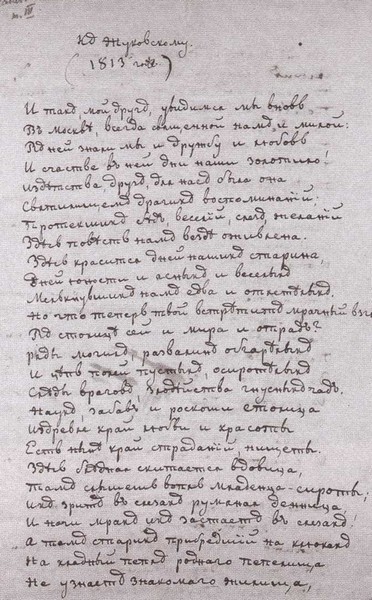 Къ Жуковскому.
(1813 годъ)
И такъ, мой другъ, увидимся мы вновь
Въ Москвѣ, всегда священной намъ и милой!
Въ ней знали мы и дружбу и любовь
И счастье въ ней дни наши золотило.
Изъ дѣтства, другъ, для насъ была она
Святилищемъ драгихъ воспоминаній;
Протекшихъ бѣдъ, веселій, слезъ, желаній
Здѣсь повѣсть намъ вездѣ оживлена.
Здѣсь красится дней нашихъ старина,
Дней юности и ясныхъ и веселыхъ
Мелькнувшихъ намъ едва и отлетѣлыхъ.
Но что теперь твой встрѣтитъ мрачный взглядъ
Въ столицѣ сей и мира и отрадъ?
Ряды могилъ, развалинъ обгорѣлыхъ
И цѣпь полей пустыхъ, осиротѣлыхъ
Слѣды враговъ, злодѣйства гнусныхъ чадъ.
Наукъ, забавъ и роскоши столица
Издревле край любви и красоты
Есть нынѣ край страданій, нищеты.
Здѣсь бѣдная скитается вдовица,
Тамъ слышишь вопль младенца-сироты;
Ихъ зритъ въ слезахъ румяная денница,
И ночи мракъ ихъ застаетъ въ слезахъ!
А тамъ старикъ прибредшій на клюкахъ
На хладный пепелъ родного пепелища,
Не узнаетъ знакомаго жилища,